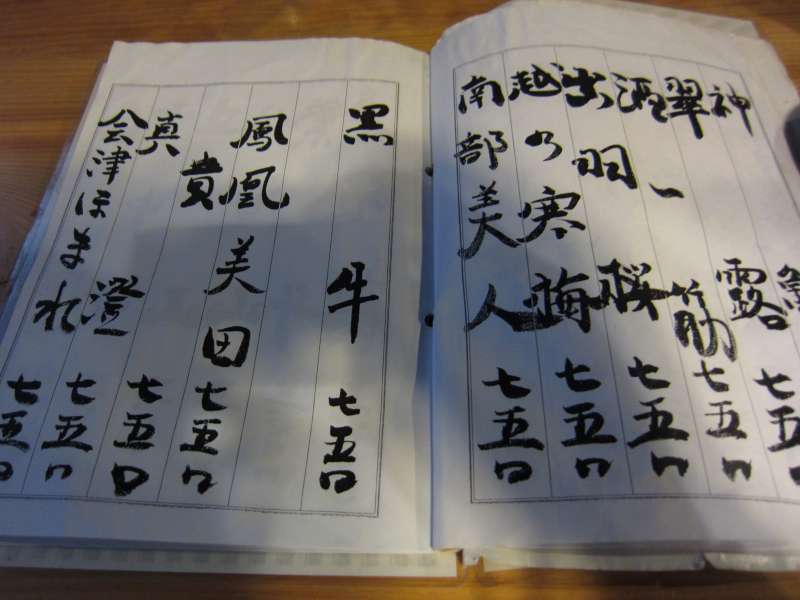 神
翠露 七五〇
酒一筋 七五〇
出羽桜 七五〇
越乃寒梅 七五〇
南部美人 七五〇
黒牛 七五〇
鳳凰美田 七五〇
貴 七五〇
真澄 七五〇
会津ほまれ 七五〇